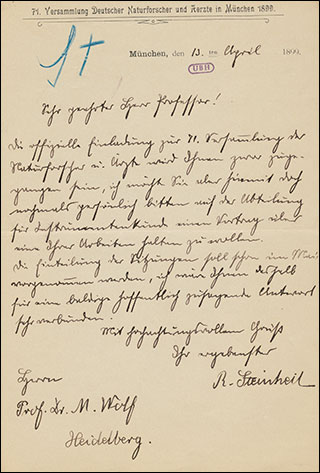 71. Versammlung Deutscher Naturforscher und Aerzte in München 1899.
München, den 13. ten April 1899.
UBH
Sehr geehrter Herr Professor!
Die offizielle Einladung zur 71. Versammlung der
Naturforscher u. Ärzte wird Ihnen zwar zuge-
gangen sein, ich möchte Sie aber hiermit doch
nochmals persönlich bitten auf der Abteilung
für Instrumentenkunde einen Vortrag über
eine Ihrer Arbeiten halten zu wollen.
Die Einteilung der Sitzungen soll schon im Mai
vorgenommen werden, ich wäre Ihnen deshalb
für eine baldige hoffentlich zusagende Antwort
sehr verbunden.
Mit hochachtungsvollem Gruß
Ihr ergebenster
R. Steinheil
Herrn
Prof. Dr. M. Wolf
Heidelberg.